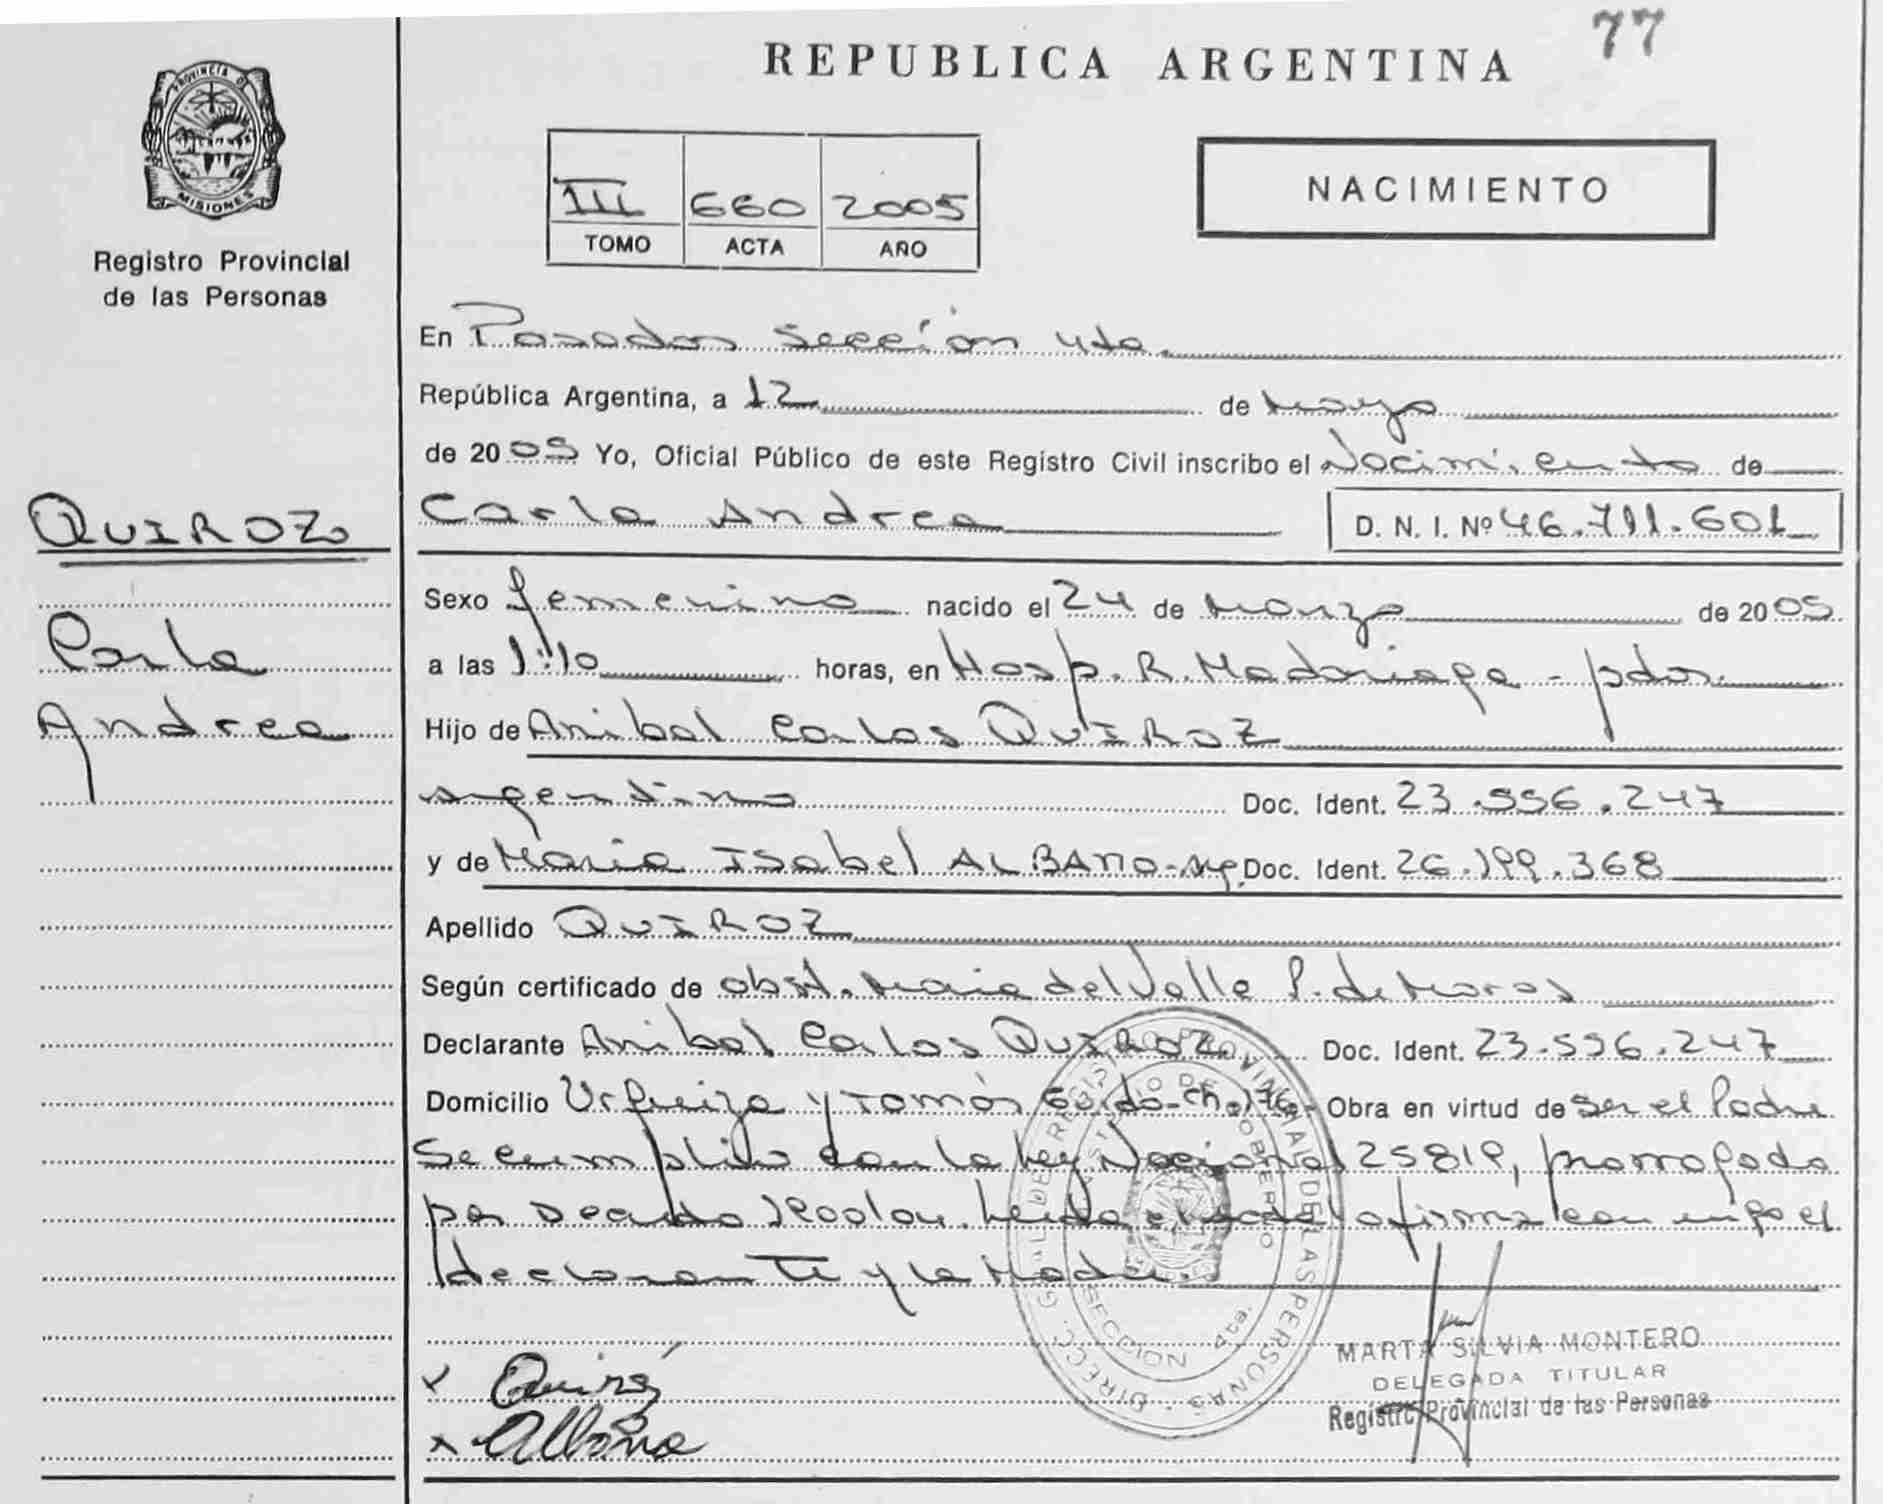 77
REPUBLICA ARGENTINA
PROVINCIA DE
MISIONES
Registro Provincial
de las Personas
III 660 2005
TOMO ACTA AÑO
NACIMIENTO
En Posadas Sección 4ta.
República Argentina, a 12 de Mayo
de 2005 Yo, Oficial Público de este Registro Civil inscribo el Nacimiento de
QUIROZ
Carla Andrea D. N. I. Nº 46.711.601
Sexo femenino nacido el 24 de Marzo de 2005
Carla
a las 1:10 horas, en Hosp. R. Madariaga - pdas.
Andrea
Hijo de Anibal Carlos QUIROZ
argentino Doc. Ident. 23.556.247
y de Maria Isabel ALBANO - Doc. Ident. 26.199.368
Apellido QUIROZ
Según certificado de obst. Maria del Valle P. de Moras
Declarante Anibal Carlos QUIROZ Doc. Ident. 23.556.247
Domicilio Urquiza y Tomás Guido - Ch. 176 - Obra en virtud de ser el Padre
Se cumplió con la Ley Nacional 25819, prorrogada
por Decreto Leida el acta la firma con migo el
declarante y la Madre.
DIRECC. GRAL. DE REGISTRO PROVINCIAL DE LAS PERSONAS
MINISTERIO DE GOBIERNO
SECCION 4ta.
MARTA SILVIA MONTERO
DELEGADA TITULAR
Registro Provincial de las Personas
x Quiroz
x Albano